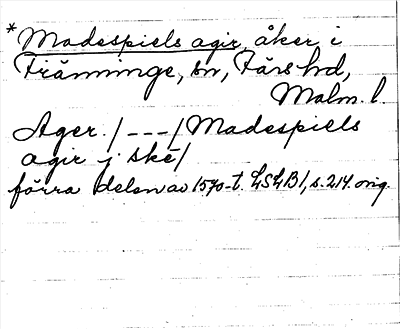 *Madespiels agir, åker i
Främminge, sn, Färs hd,
Malm. l.
Ager. / --- / Madespiels
agir j ske /
förra delen av 1570-t. LSLB1, s. 214. orig.